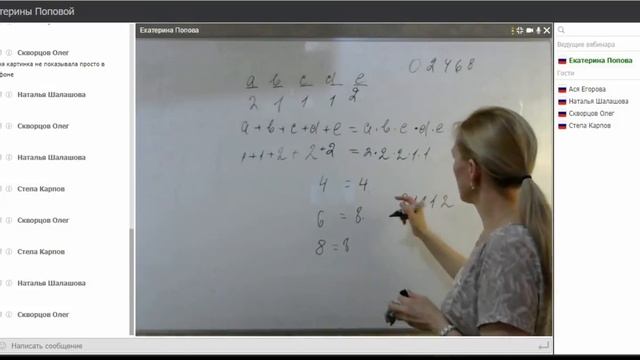 терины Поповой
Скворцов Олег
я картинка не показывала просто в
фоне
Наталья Шалашова
Скворцов Олег
Наталья Шалашова
Степа Карпов
Скворцов Олег
Степа Карпов
Наталья Шалашова
Скворцов Олег
Написать сообщение
Екатерина Попова
a b c d e
2 1 1 1 2
0 2 4 6 8
a+b+c+d+e = a·b·c·d·e
1+1+2+2+2 = 2·2·2·1·1
4 = 4
6 = 8
8 = 8
Ведущие вебинара
Екатерина Попова
Гости
Ася Егорова
Наталья Шалашова
Скворцов Олег
Степа Карпов